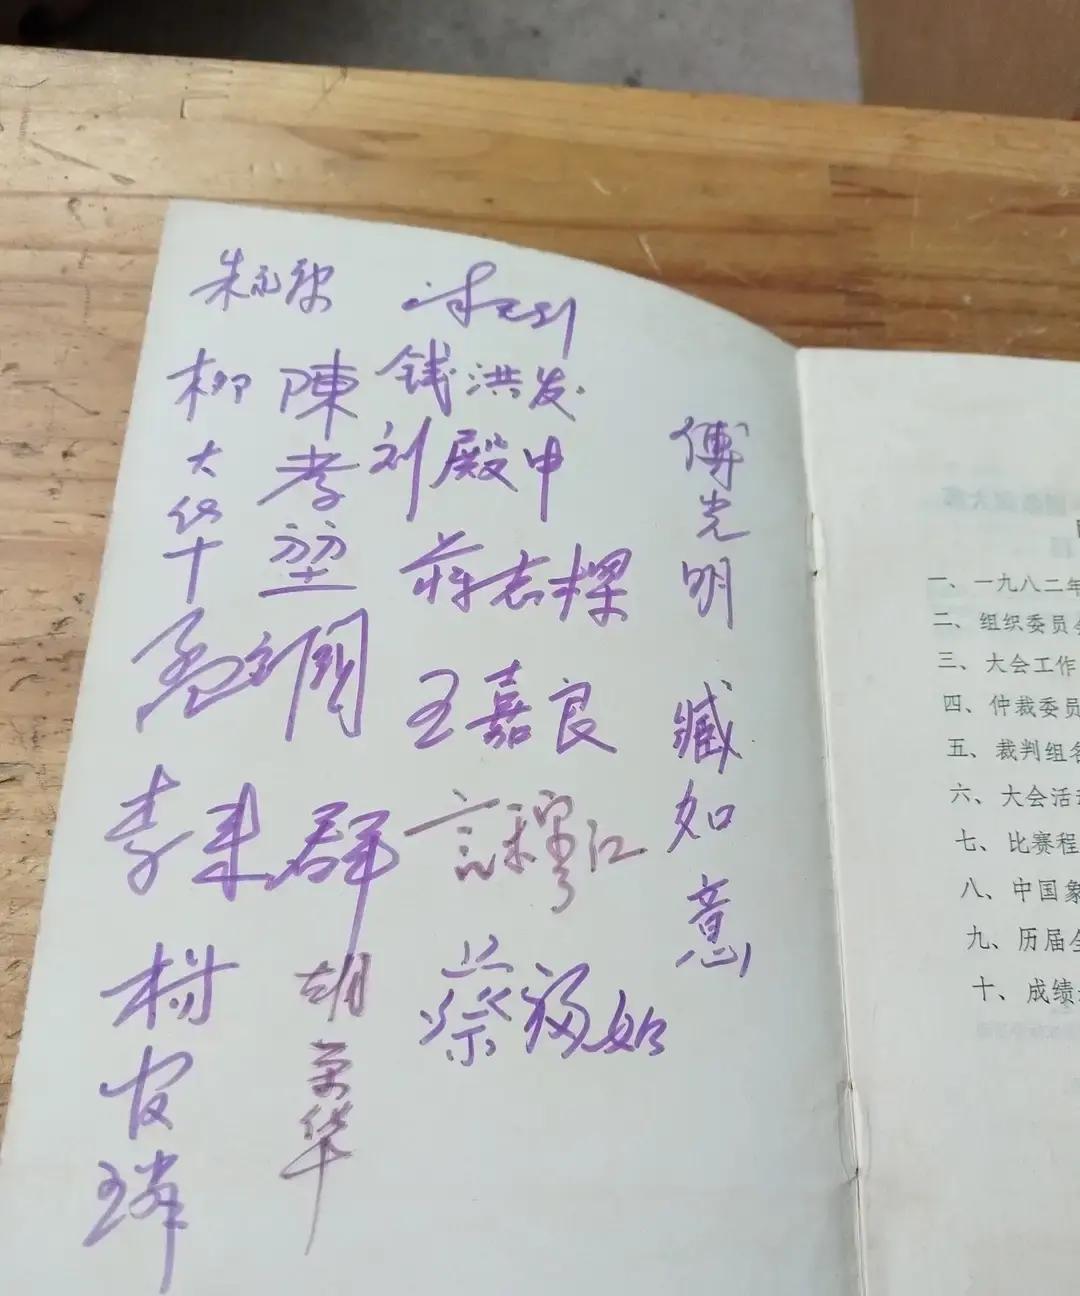 朱永康
柳大华
陳孝堃
钱洪发
刘殿中
蒋志樑
孟立国
王嘉良
李来群
言穆江
杨官璘
胡荣华
蔡福如
傅光明
臧如意
一、一九八二年
二、组织委员会
三、大会工作
四、仲裁委员
五、裁判组名
六、大会活动
七、比赛程
八、中国象
九、历届全
十、成绩